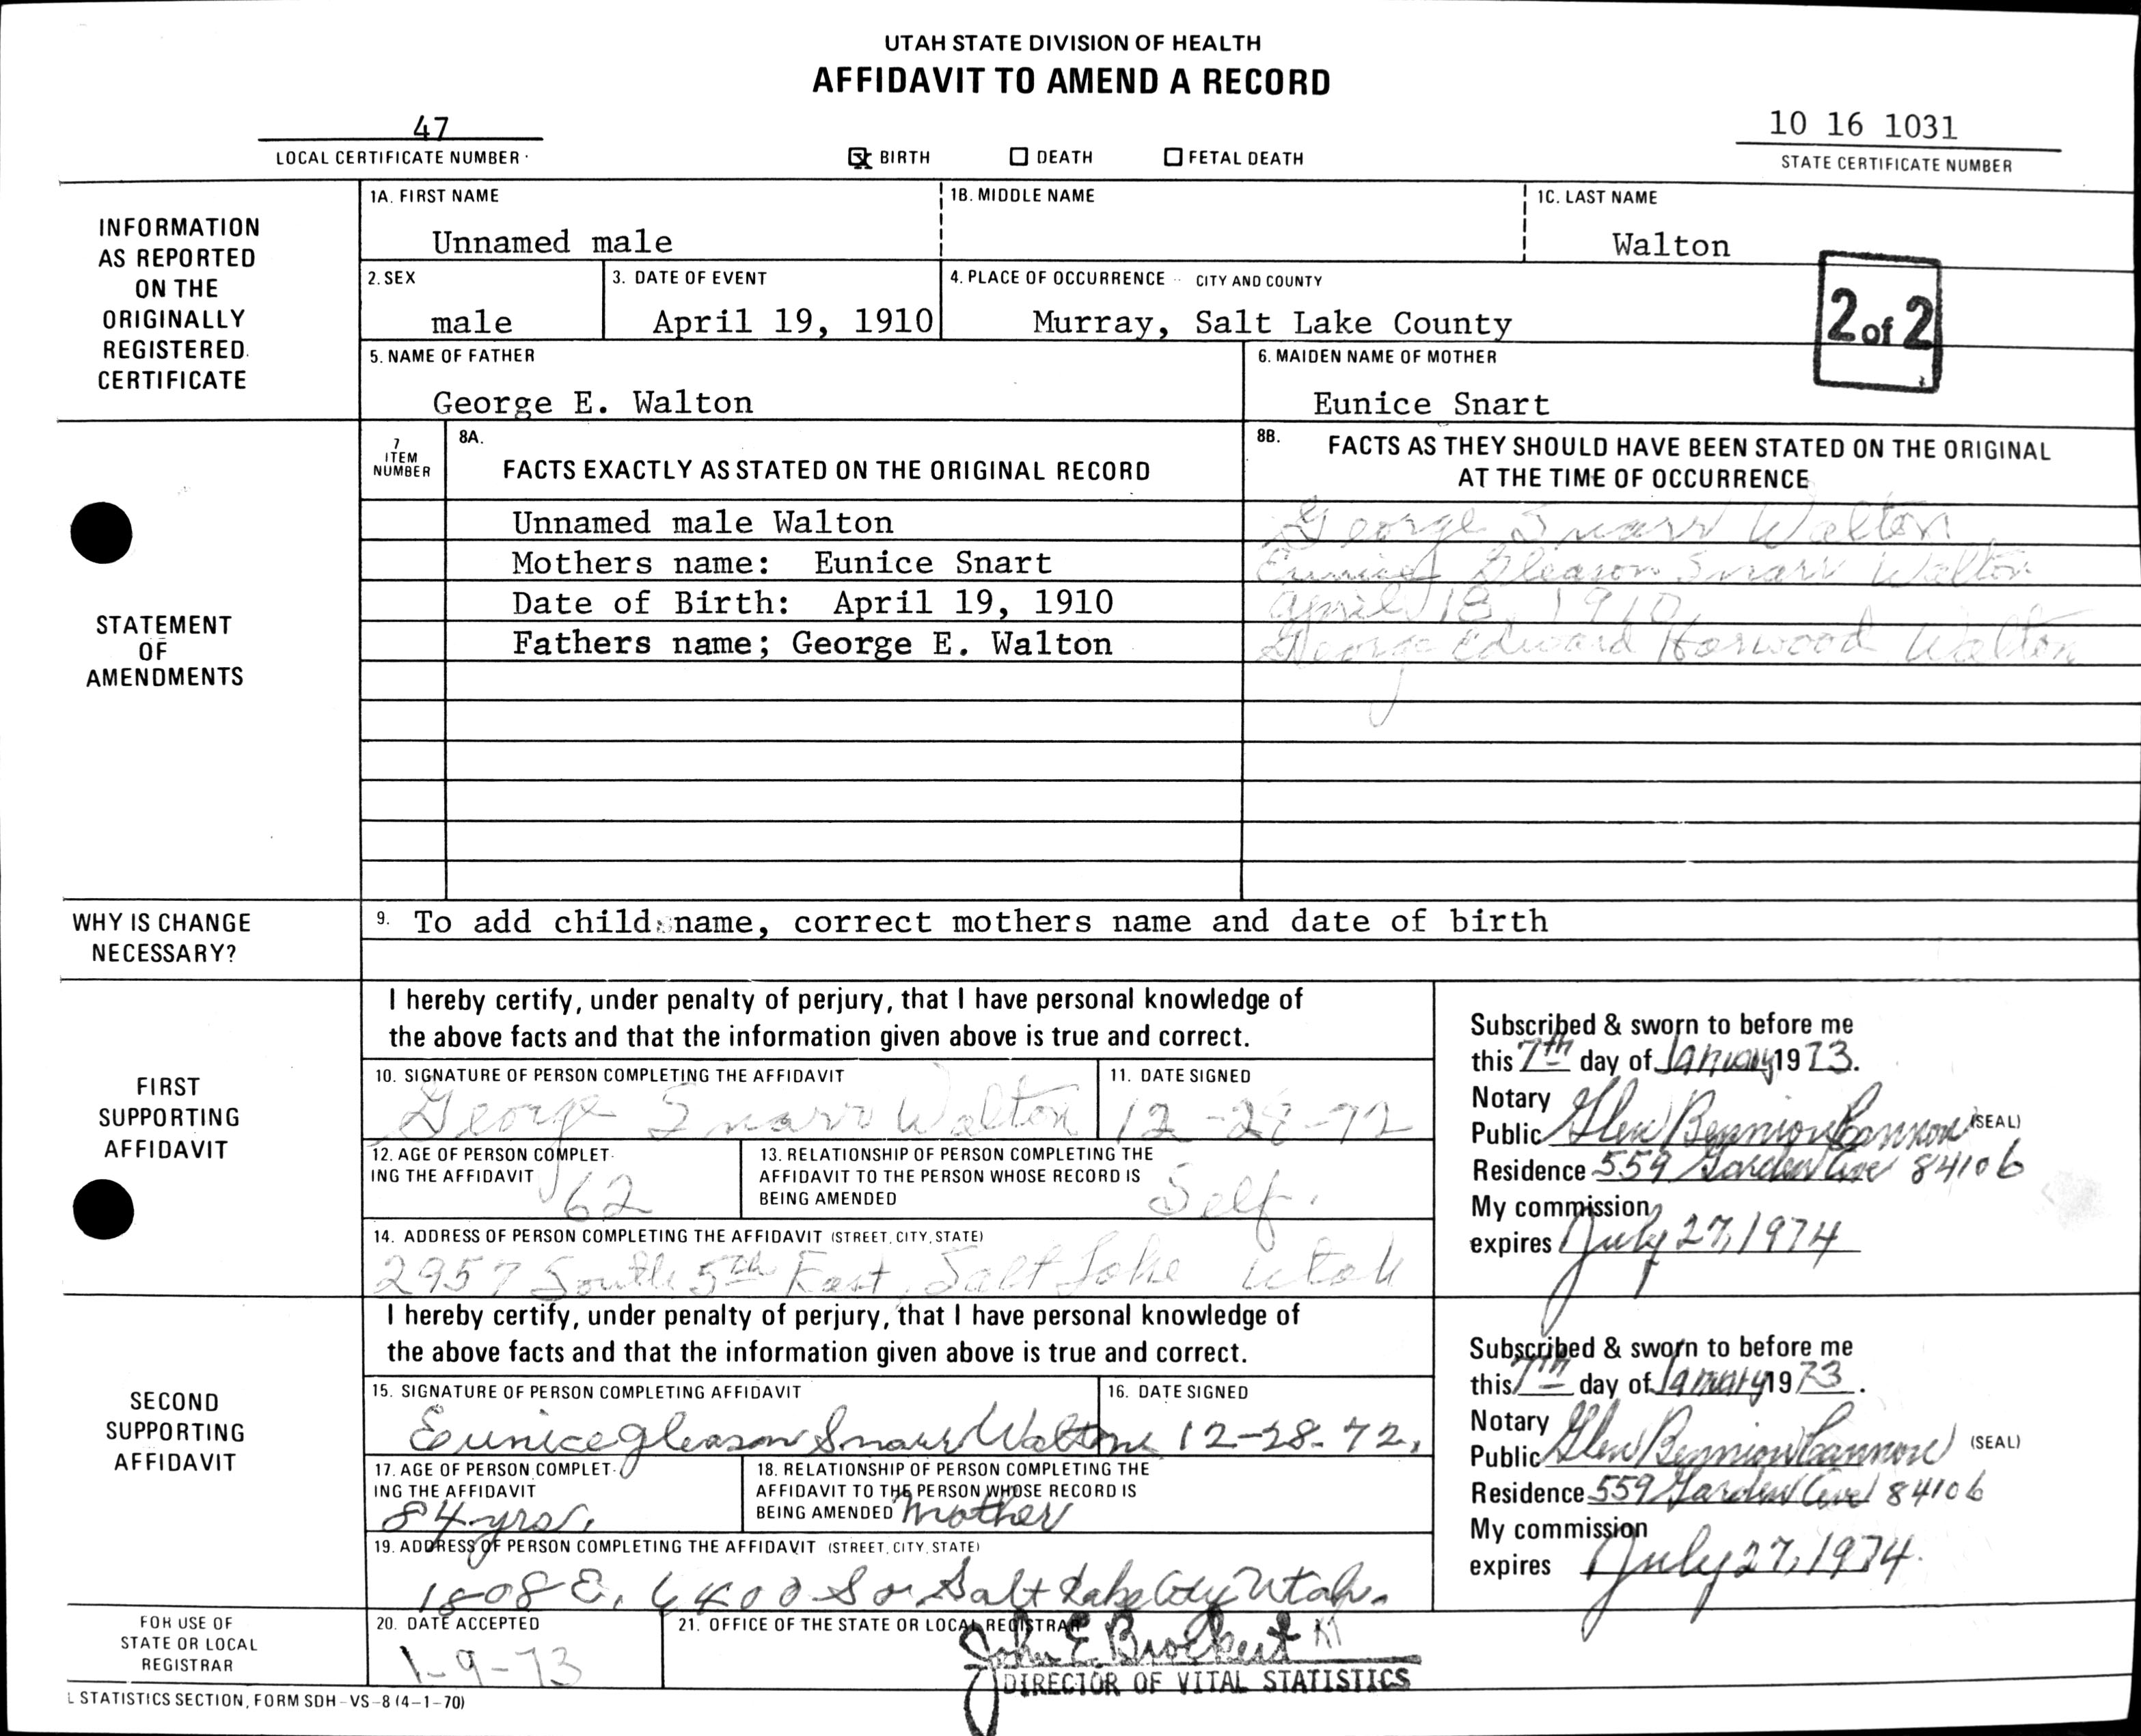 UTAH STATE DIVISION OF HEALTH
AFFIDAVIT TO AMEND A RECORD
47
LOCAL CERTIFICATE NUMBER
BIRTH DEATH FETAL DEATH
10 16 1031
STATE CERTIFICATE NUMBER
INFORMATION
AS REPORTED
ON THE
ORIGINALLY
REGISTERED
CERTIFICATE
1A. FIRST NAME
Unnamed male
1B. MIDDLE NAME
1C. LAST NAME
Walton
2. SEX
male
3. DATE OF EVENT
April 19, 1910
4. PLACE OF OCCURRENCE CITY AND COUNTY
Murray, Salt Lake County
2 of 2
5. NAME OF FATHER
George E. Walton
6. MAIDEN NAME OF MOTHER
Eunice Snart
STATEMENT
OF
AMENDMENTS
7
ITEM
NUMBER
8A.
FACTS EXACTLY AS STATED ON THE ORIGINAL RECORD
8B. FACTS AS THEY SHOULD HAVE BEEN STATED ON THE ORIGINAL
AT THE TIME OF OCCURRENCE
Unnamed male Walton
George Snarr Walton
Mothers name: Eunice Snart
Eunice Gleason Snarr Walton
Date of Birth: April 19, 1910
April 18, 1910
Fathers name; George E. Walton
George Edward Horwood Walton
WHY IS CHANGE
NECESSARY?
9. To add child name, correct mothers name and date of birth
FIRST
SUPPORTING
AFFIDAVIT
I hereby certify, under penalty of perjury, that I have personal knowledge of
the above facts and that the information given above is true and correct.
10. SIGNATURE OF PERSON COMPLETING THE AFFIDAVIT
George Snarr Walton
11. DATE SIGNED
12-28-72
12. AGE OF PERSON COMPLET-
ING THE AFFIDAVIT
62
13. RELATIONSHIP OF PERSON COMPLETING THE
AFFIDAVIT TO THE PERSON WHOSE RECORD IS
BEING AMENDED
Self.
14. ADDRESS OF PERSON COMPLETING THE AFFIDAVIT (STREET, CITY, STATE)
2957 South 5th East, Salt Lake Utah
Subscribed & sworn to before me
this 7th day of January 1973.
Notary
Public Glen Bennion Cannon (SEAL)
Residence 559 Garden Ave 84106
My commission
expires July 27, 1974
SECOND
SUPPORTING
AFFIDAVIT
I hereby certify, under penalty of perjury, that I have personal knowledge of
the above facts and that the information given above is true and correct.
15. SIGNATURE OF PERSON COMPLETING AFFIDAVIT
Eunice Gleason Snarr Walton
16. DATE SIGNED
12-28-72.
17. AGE OF PERSON COMPLET-
ING THE AFFIDAVIT
84 yrs.
18. RELATIONSHIP OF PERSON COMPLETING THE
AFFIDAVIT TO THE PERSON WHOSE RECORD IS
BEING AMENDED Mother
19. ADDRESS OF PERSON COMPLETING THE AFFIDAVIT (STREET, CITY, STATE)
1808 E. 6400 So Salt Lake City Utah.
Subscribed & sworn to before me
this 7th day of January 1973.
Notary
Public Glen Bennion Cannon (SEAL)
Residence 559 Garden Ave 84106
My commission
expires July 27, 1974.
FOR USE OF
STATE OR LOCAL
REGISTRAR
20. DATE ACCEPTED
1-9-73
21. OFFICE OF THE STATE OR LOCAL REGISTRAR
John E. Brockert
DIRECTOR OF VITAL STATISTICS
L STATISTICS SECTION, FORM SDH-VS-8 (4-1-70)